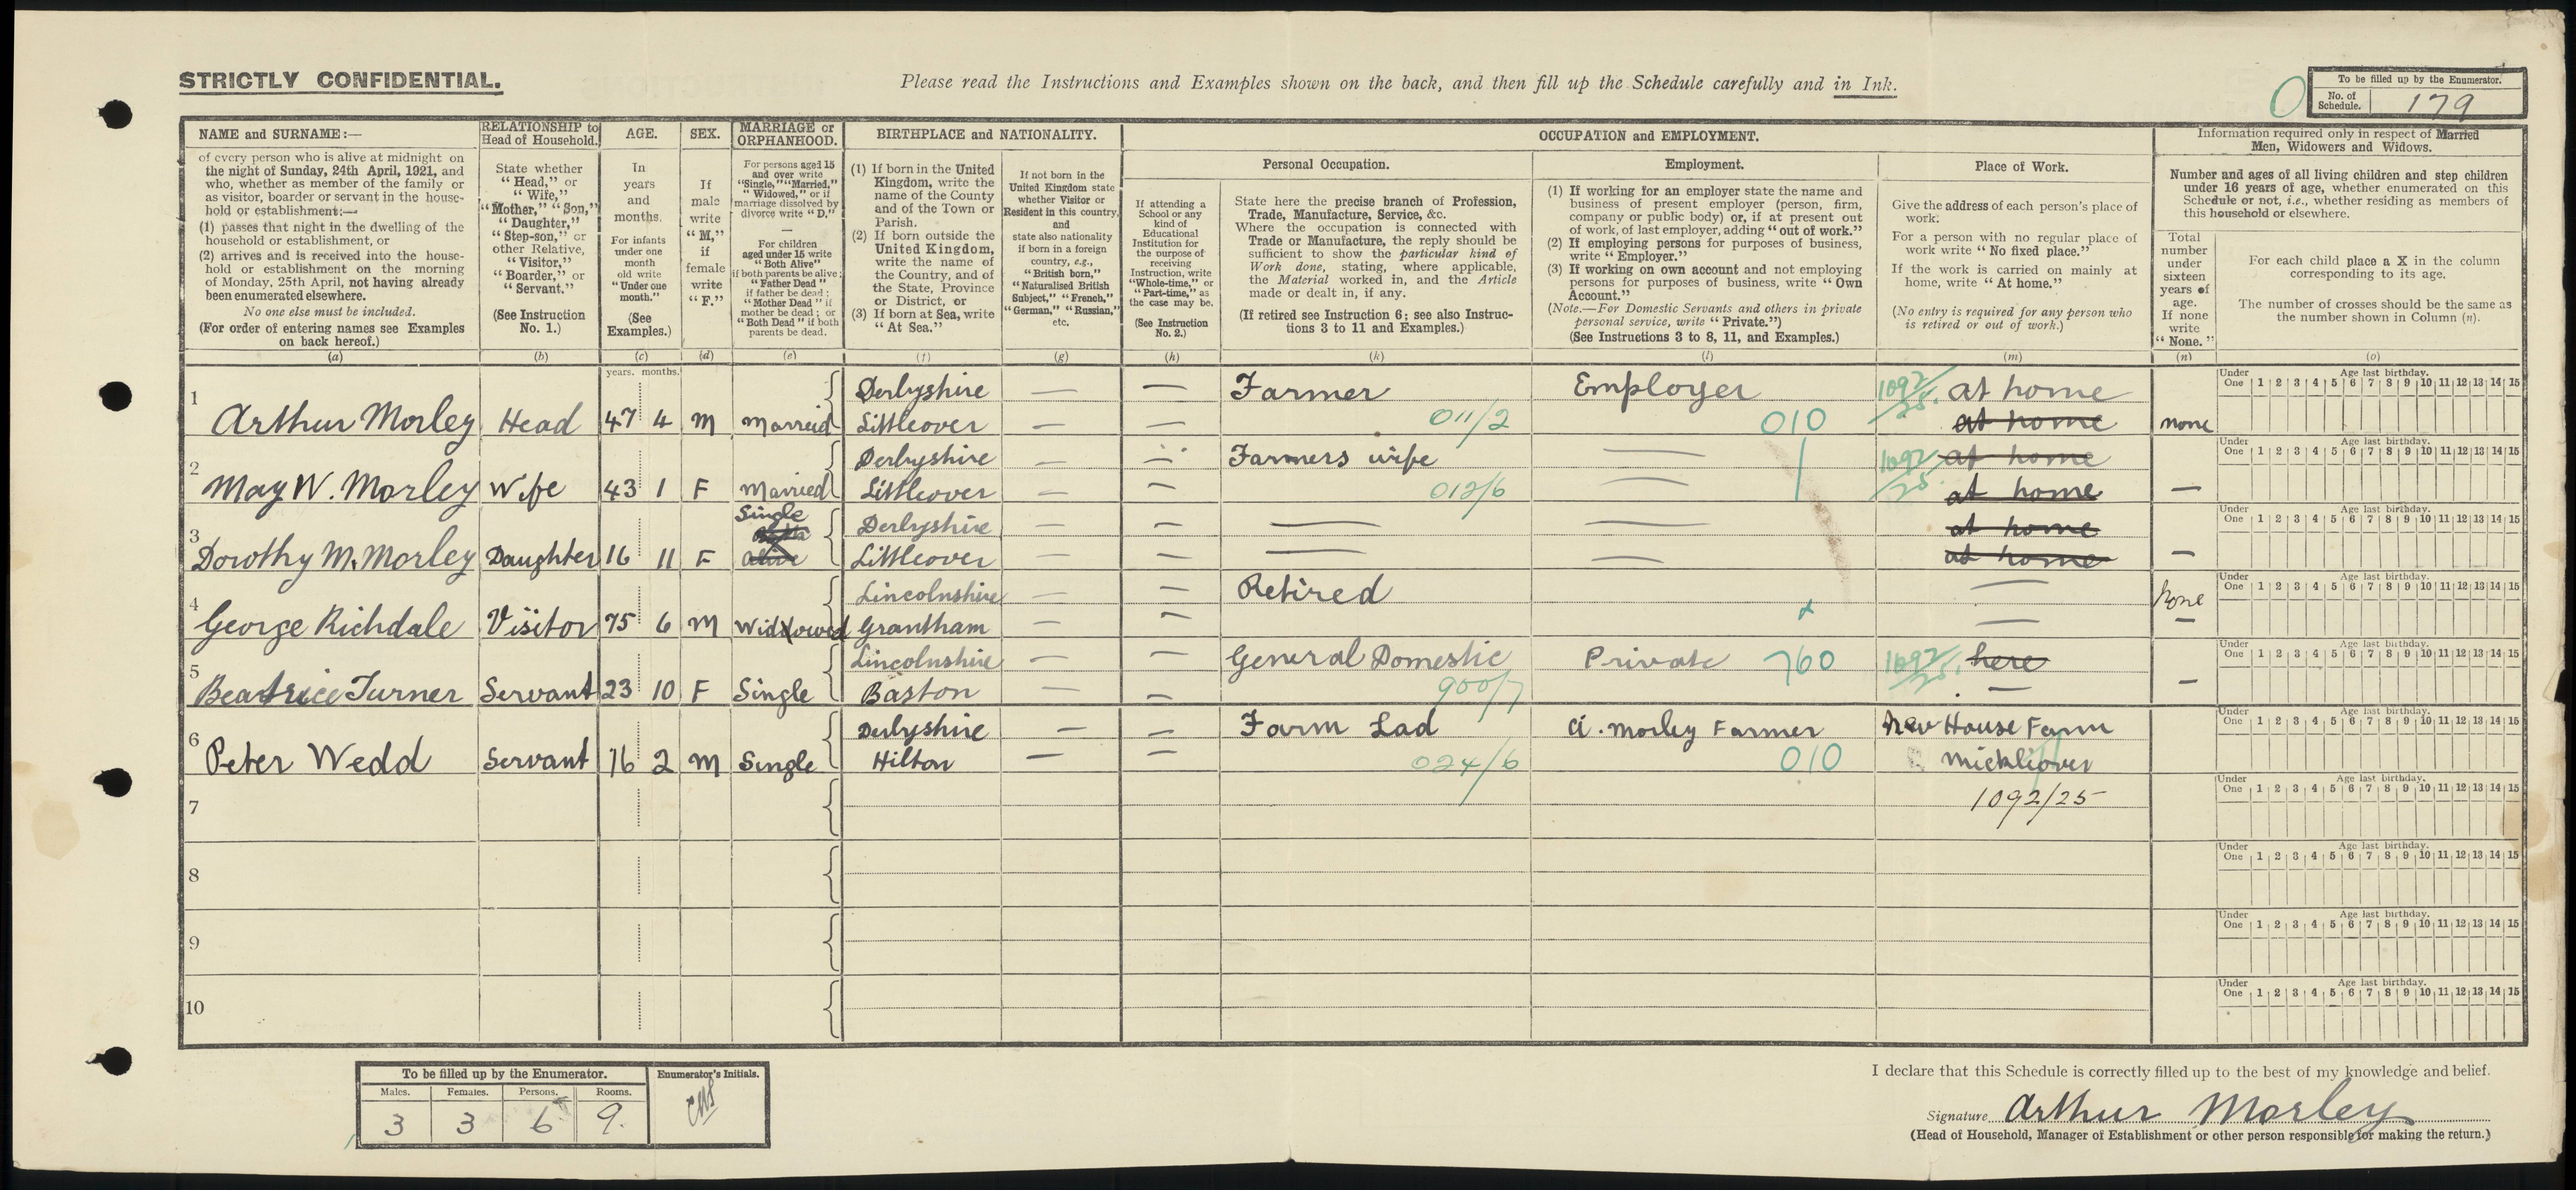 STRICTLY CONFIDENTIAL.
Please read the Instructions and Examples shown on the back, and then fill up the Schedule carefully and in Ink.
0
To be filled up by the Enumerator.
No. of Schedule. 179
NAME and SURNAME:—
of every person who is alive at midnight on
the night of Sunday, 24th April, 1921, and
who, whether as member of the family or
as visitor, boarder or servant in the house-
hold or establishment:—
(1) passes that night in the dwelling of the
household or establishment, or
(2) arrives and is received into the house-
hold or establishment on the morning
of Monday, 25th April, not having already
been enumerated elsewhere.
No one else must be included.
(For order of entering names see Examples
on back hereof.)
(a)
RELATIONSHIP to
Head of Household.
State whether
"Head," or
"Wife,"
"Mother," "Son,"
"Daughter,"
"Step-son," or
other Relative,
"Visitor,"
"Boarder," or
"Servant."
(See Instruction
No. 1.)
(b)
AGE.
In
years
and
months.
For infants
under one
month
old write
"Under one
month."
(See
Examples.)
(c)
SEX.
If
male
write
"M,"
if
female
write
"F."
(d)
MARRIAGE or
ORPHANHOOD.
For persons aged 15
and over write
"Single," "Married,"
"Widowed," or if
marriage dissolved by
divorce write "D."
—
For children
aged under 15 write
"Both Alive"
if both parents be alive;
"Father Dead"
if father be dead;
"Mother Dead" if
mother be dead; or
"Both Dead" if both
parents be dead.
(e)
BIRTHPLACE and NATIONALITY.
(1) If born in the United
Kingdom, write the
name of the County
and of the Town or
Parish.
(2) If born outside the
United Kingdom,
write the name of
the Country, and of
the State, Province
or District, or
(3) If born at Sea, write
"At Sea."
(f)
If not born in the
United Kingdom state
whether Visitor or
Resident in this country,
and
state also nationality
if born in a foreign
country, e.g.,
"British born,"
"Naturalised British
Subject," "French,"
"German," "Russian,"
etc.
(g)
OCCUPATION and EMPLOYMENT.
If attending a
School or any
kind of
Educational
Institution for
the purpose of
receiving
Instruction, write
"Whole-time," or
"Part-time," as
the case may be.
(See Instruction
No. 2.)
(h)
Personal Occupation.
State here the precise branch of Profession,
Trade, Manufacture, Service, &c.
Where the occupation is connected with
Trade or Manufacture, the reply should be
sufficient to show the particular kind of
Work done, stating, where applicable,
the Material worked in, and the Article
made or dealt in, if any.
(If retired see Instruction 6; see also Instruc-
tions 3 to 11 and Examples.)
(k)
Employment.
(1) If working for an employer state the name and
business of present employer (person, firm,
company or public body) or, if at present out
of work, of last employer, adding "out of work."
(2) If employing persons for purposes of business,
write "Employer."
(3) If working on own account and not employing
persons for purposes of business, write "Own
Account."
(Note.—For Domestic Servants and others in private
personal service, write "Private.")
(See Instructions 3 to 8, 11, and Examples.)
(l)
Place of Work.
Give the address of each person's place of
work.
For a person with no regular place of
work write "No fixed place."
If the work is carried on mainly at
home, write "At home."
(No entry is required for any person who
is retired or out of work.)
(m)
Information required only in respect of Married
Men, Widowers and Widows.
Number and ages of all living children and step children
under 16 years of age, whether enumerated on this
Schedule or not, i.e., whether residing as members of
this household or elsewhere.
Total
number
under
sixteen
years of
age.
If none
write
"None."
(n)
For each child place a X in the column
corresponding to its age.
The number of crosses should be the same as
the number shown in Column (n).
(o)
years. months.
Under One Age last birthday. 1 2 3 4 5 6 7 8 9 10 11 12 13 14 15
1 Derbyshire — — Farmer Employer 1092/25. at home
Arthur Morley Head 47 4 M Marreid Littleover — — 011/2 010 at home none
Under One Age last birthday. 1 2 3 4 5 6 7 8 9 10 11 12 13 14 15
2 Derbyshire — — Farmers wife — 1092/25. at home
May W. Morley Wife 43 1 F Married Littleover — — 012/6 — at home —
Under One Age last birthday. 1 2 3 4 5 6 7 8 9 10 11 12 13 14 15
3 Single Both Derbyshire — — — — at home
Dorothy M. Morley Daughter 16 11 F alive Littleover — — — — at home —
Under One Age last birthday. 1 2 3 4 5 6 7 8 9 10 11 12 13 14 15
4 Lincolnshire — — Retired — None
George Richdale Visitor 75 6 M Widdowed Grantham — — — —
Under One Age last birthday. 1 2 3 4 5 6 7 8 9 10 11 12 13 14 15
5 Lincolnshire — — General Domestic Private 760 1092/25. here
Beatrice Turner Servant 23 10 F Single Baston — — 900/7 — —
Under One Age last birthday. 1 2 3 4 5 6 7 8 9 10 11 12 13 14 15
6 Derbyshire — — Farm Lad A. Morley Farmer New House Farm
Peter Wedd Servant 16 2 M Single Hilton — — 024/6 010 Mickleover
Under One Age last birthday. 1 2 3 4 5 6 7 8 9 10 11 12 13 14 15
7 1092/25
Under One Age last birthday. 1 2 3 4 5 6 7 8 9 10 11 12 13 14 15
8
Under One Age last birthday. 1 2 3 4 5 6 7 8 9 10 11 12 13 14 15
9
Under One Age last birthday. 1 2 3 4 5 6 7 8 9 10 11 12 13 14 15
10
To be filled up by the Enumerator.
Males. Females. Persons. Rooms.
3 3 6 9.
Enumerator's Initials.
I declare that this Schedule is correctly filled up to the best of my knowledge and belief.
Signature Arthur Morley
(Head of Household, Manager of Establishment or other person responsible for making the return.)